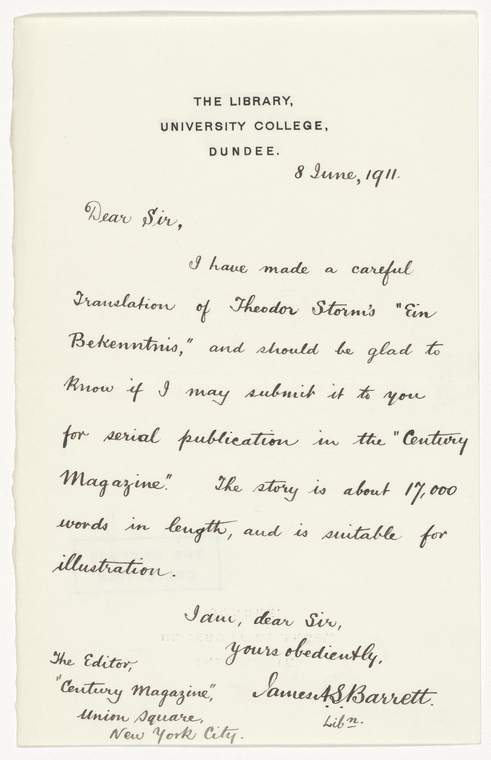 THE LIBRARY,
UNIVERSITY COLLEGE,
DUNDEE.
8 June, 1911.
Dear Sir,
I have made a careful
Translation of Theodor Storm's "Ein
Bekenntnis," and should be glad to
know if I may submit it to you
for serial publication in the "Century
Magazine". The story is about 17,000
words in length, and is suitable for
illustration.
I am, dear Sir,
Yours obediently,
James A.S. Barrett.
Libn.
The Editor,
"Century Magazine",
Union Square,
New York City.